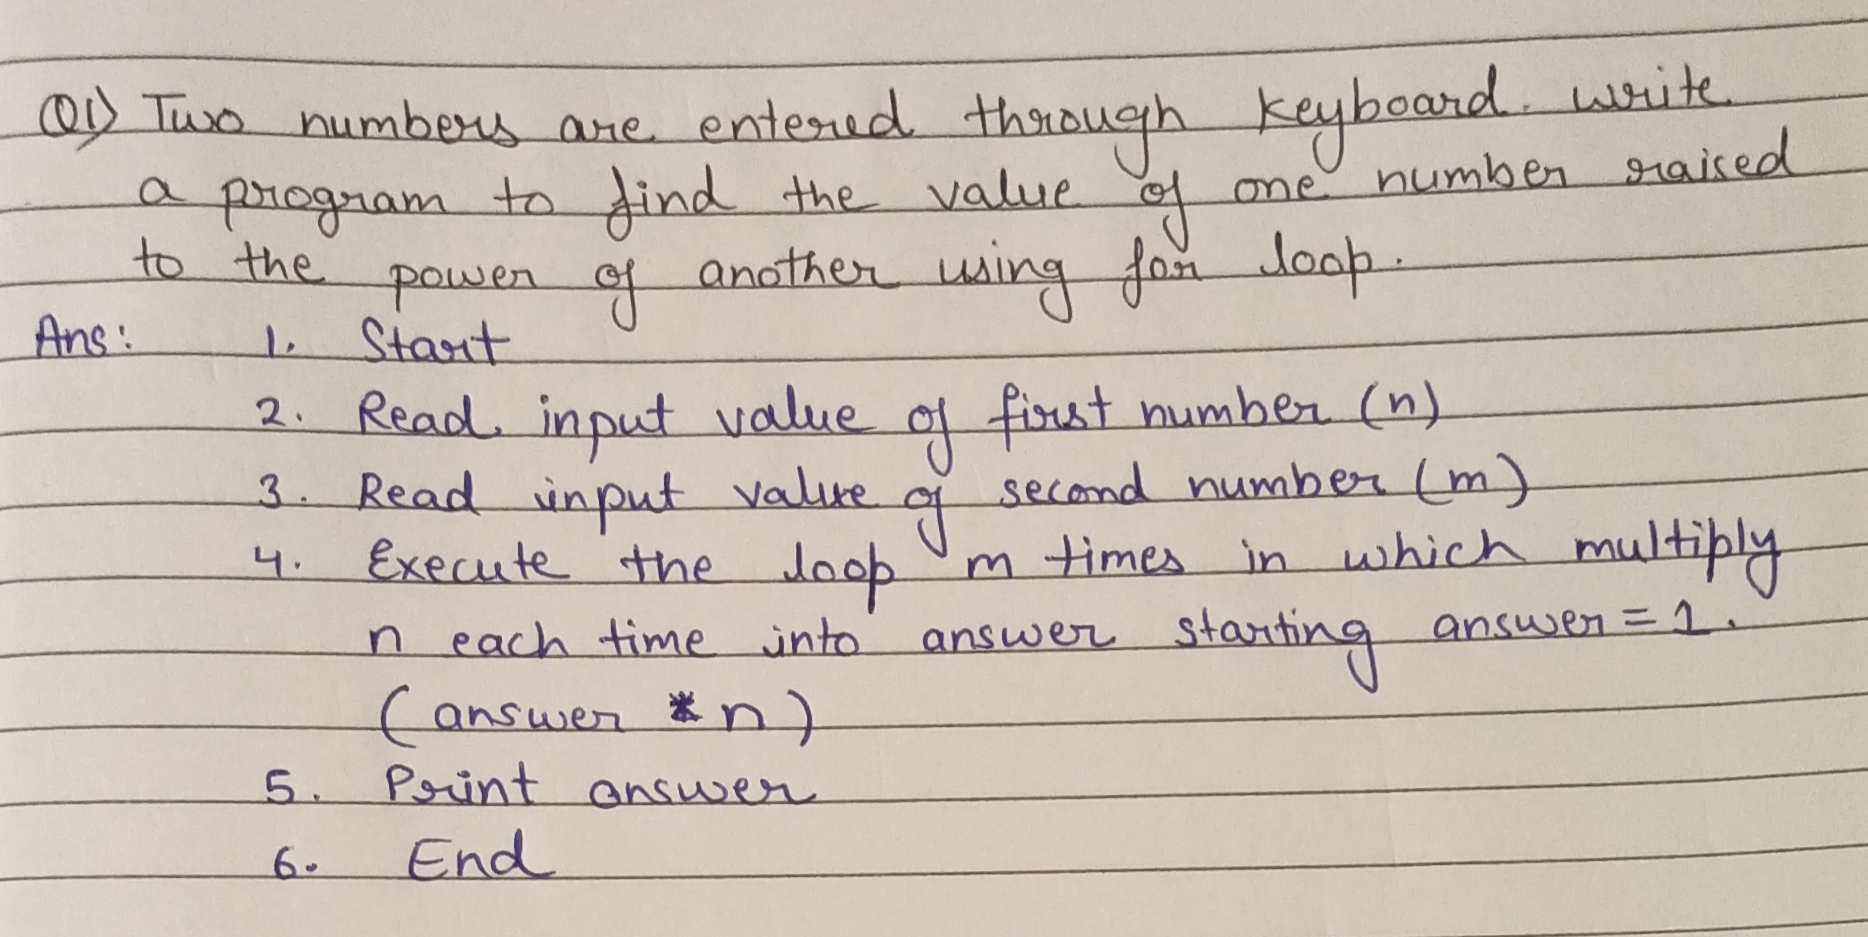 Q1) Two numbers are entered through keyboard. write
a program to find the value of one number raised
to the power of another using for loop.
Ans: 1. Start
2. Read input value of first number (n)
3. Read input value of second number (m)
4. Execute the loop m times in which multiply
n each time into answer starting answer = 1.
(answer * n)
5. Print answer
6. End